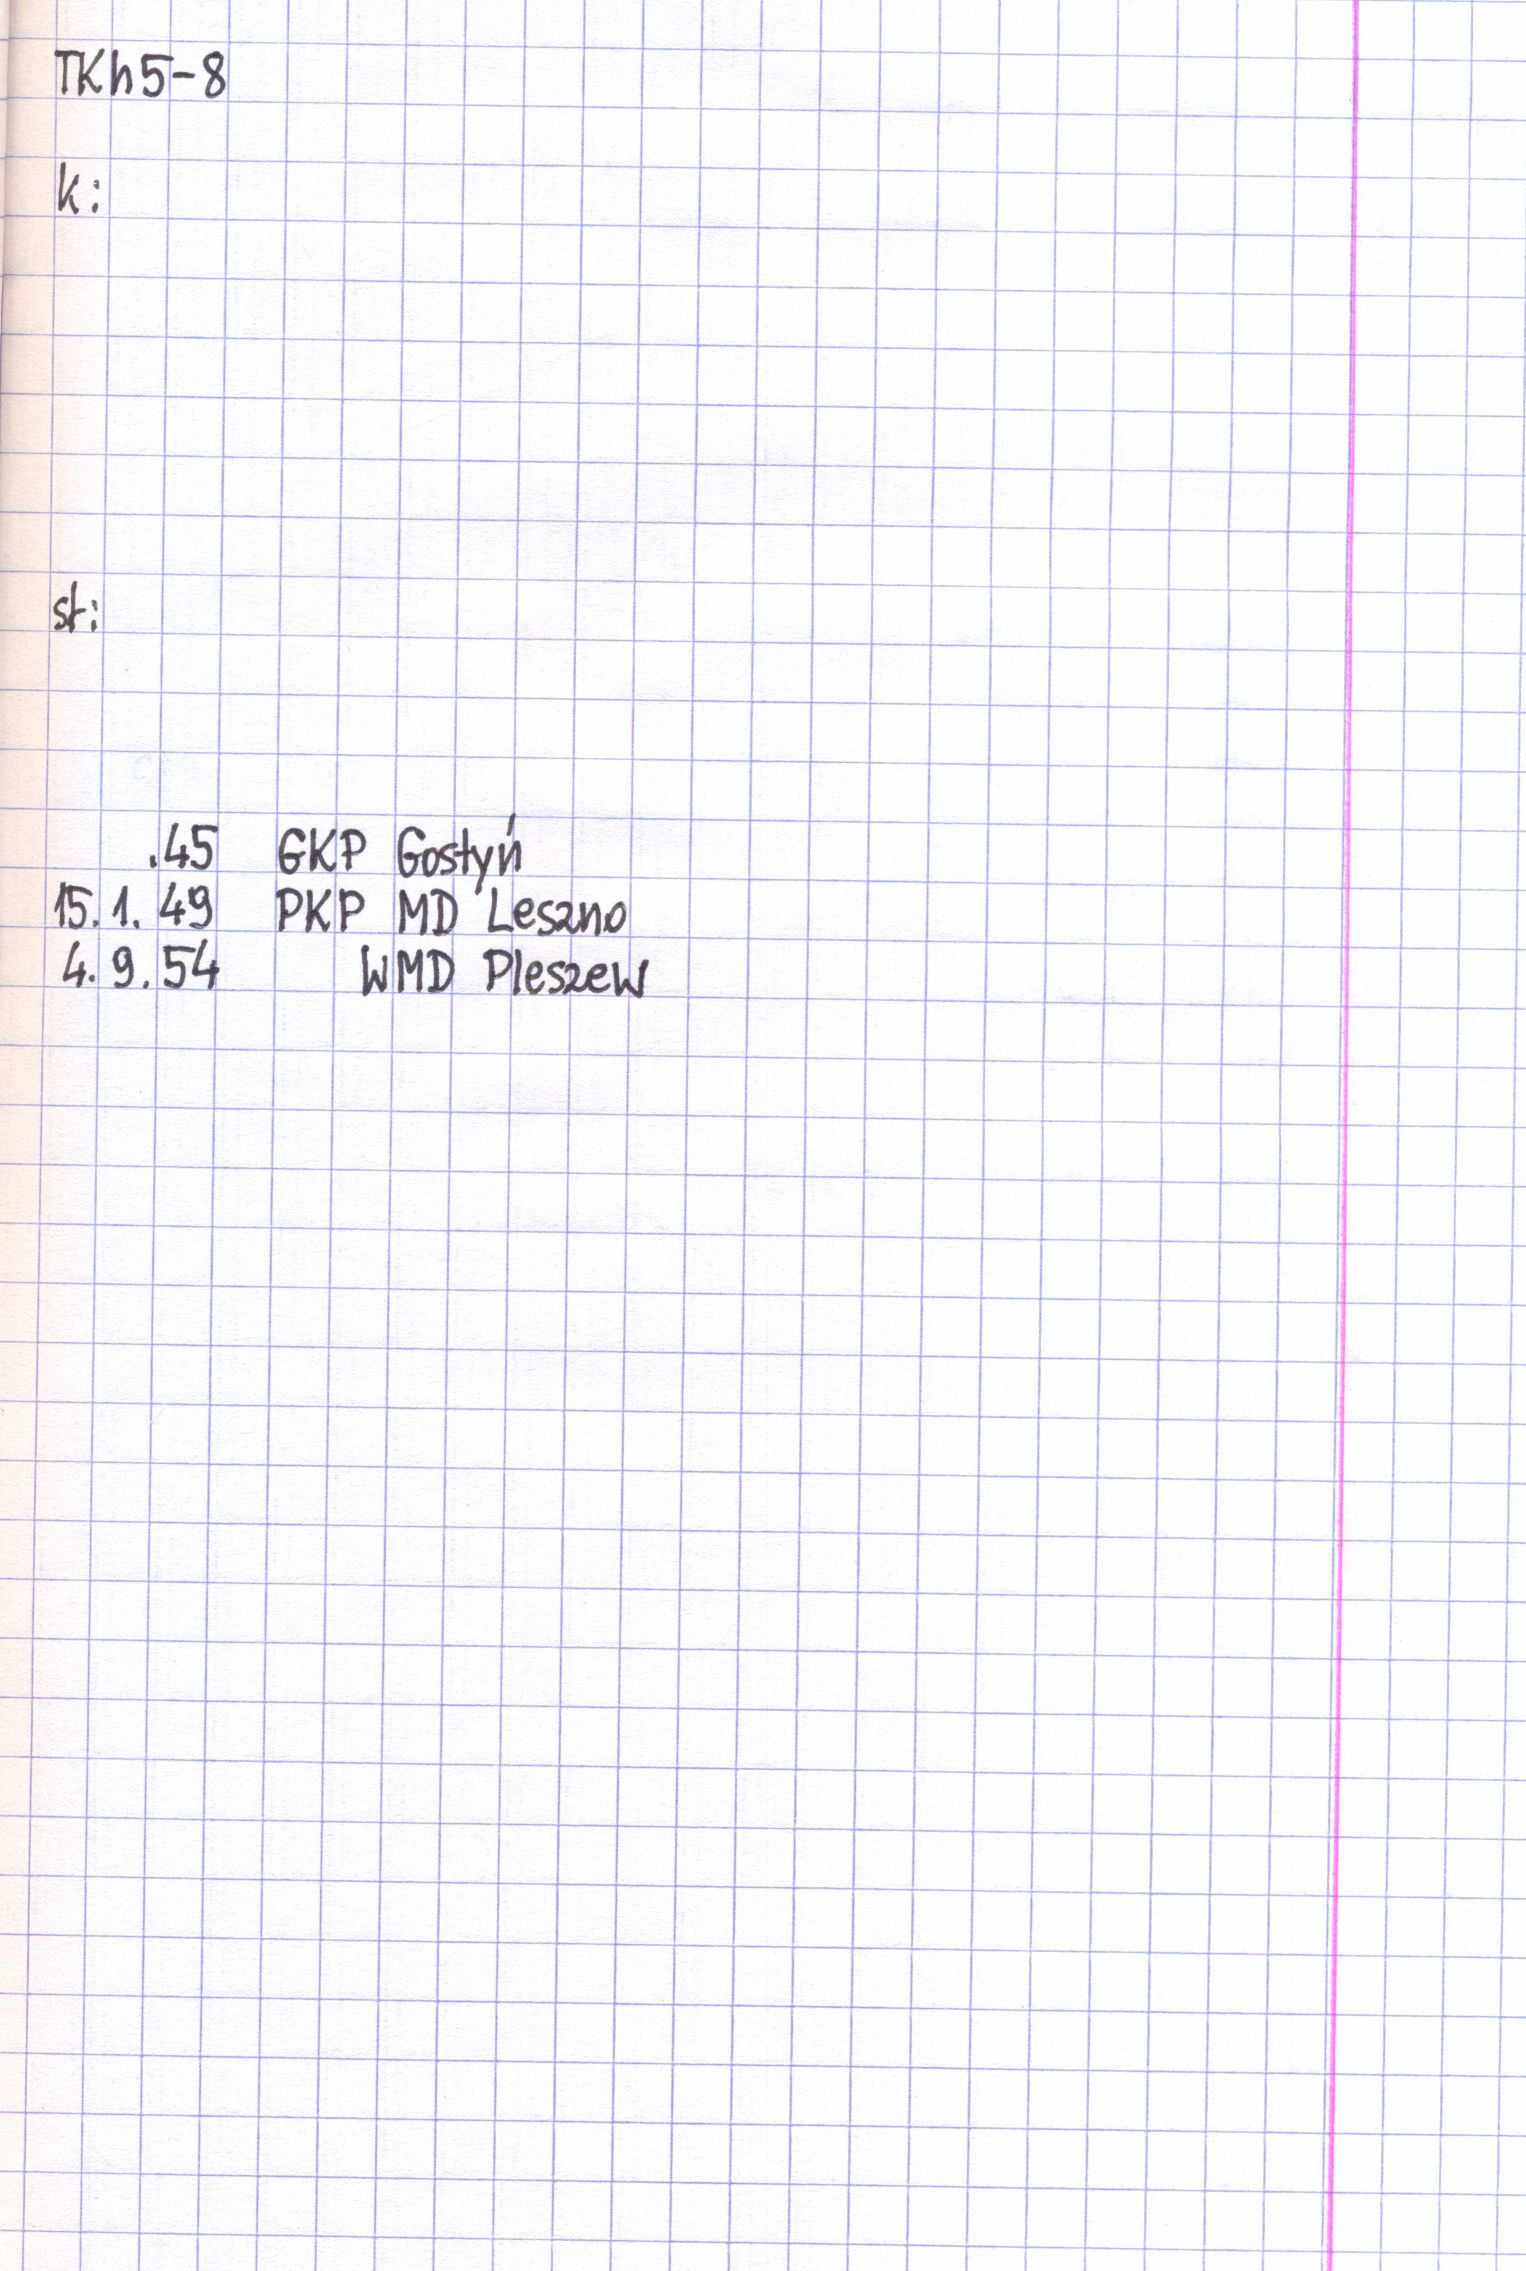 TKh5-8
k:
st:
.45 GKP Gostyń
15.1.49 PKP MD Leszno
4.9.54 WMD Pleszew